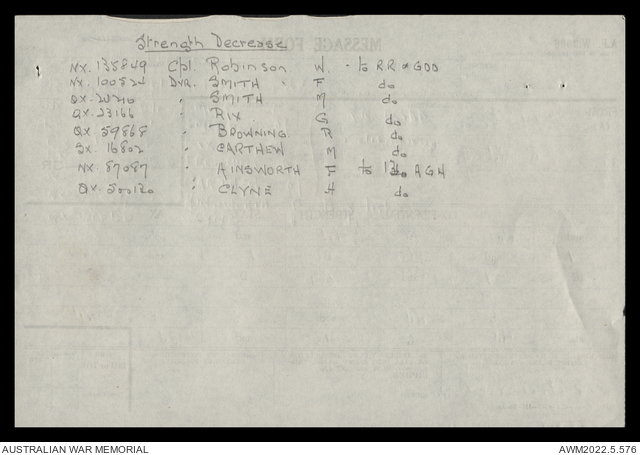 Strength Decrease
NX. 135849 Cpl Robinson W. - to R.R & GDD
NX. 100524 Dvr. SMITH " F do
QX. " SMITH M do
QX. 23166 " RIX G do
QX. 59868 " BROWNING. R do
SX. 16802 " CARTHEW M do
NX. 87087 " AINSWORTH F to AGH
QX. " CLYNE H do
AUSTRALIAN WAR MEMORIAL
AWM2022.5.576